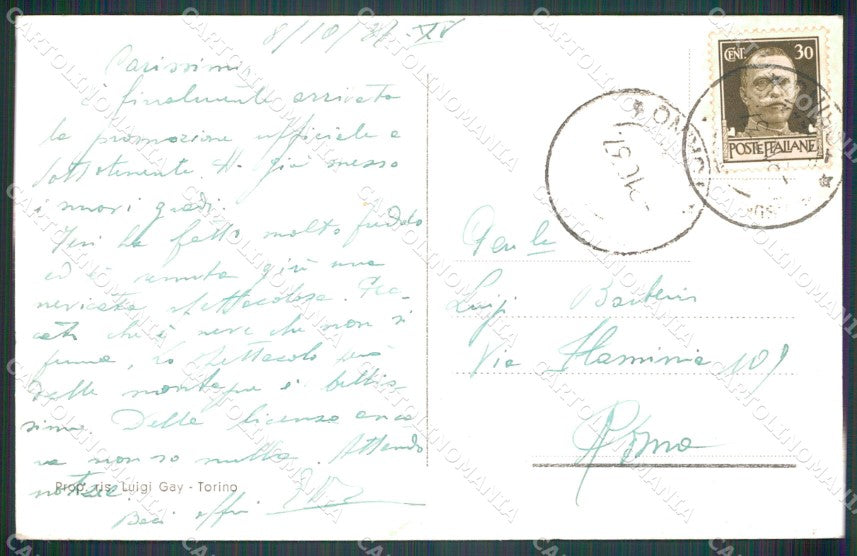 8/10/37 XV
Carissimi
è finalmente arrivata
la promozione ufficiale a
sottotenente. Ho già messo
i nuovi gradi.
Ieri ha fatto molto freddo
ed è venuta giù una
nevicata spettacolosa. Pec-
cato che è neve che non si
ferma, lo spettacolo però
delle montagne è bellis-
simo. Della licenza anco
ra non so nulla. Attendo
notizie.
Baci affri
Prop. ris. Luigi Gay - Torino
CENT. 30
POSTE ITALIANE
TORINO
Gent le
Luigi Barberis
Via Flaminia 109
Roma
CARTOLINOMANIA